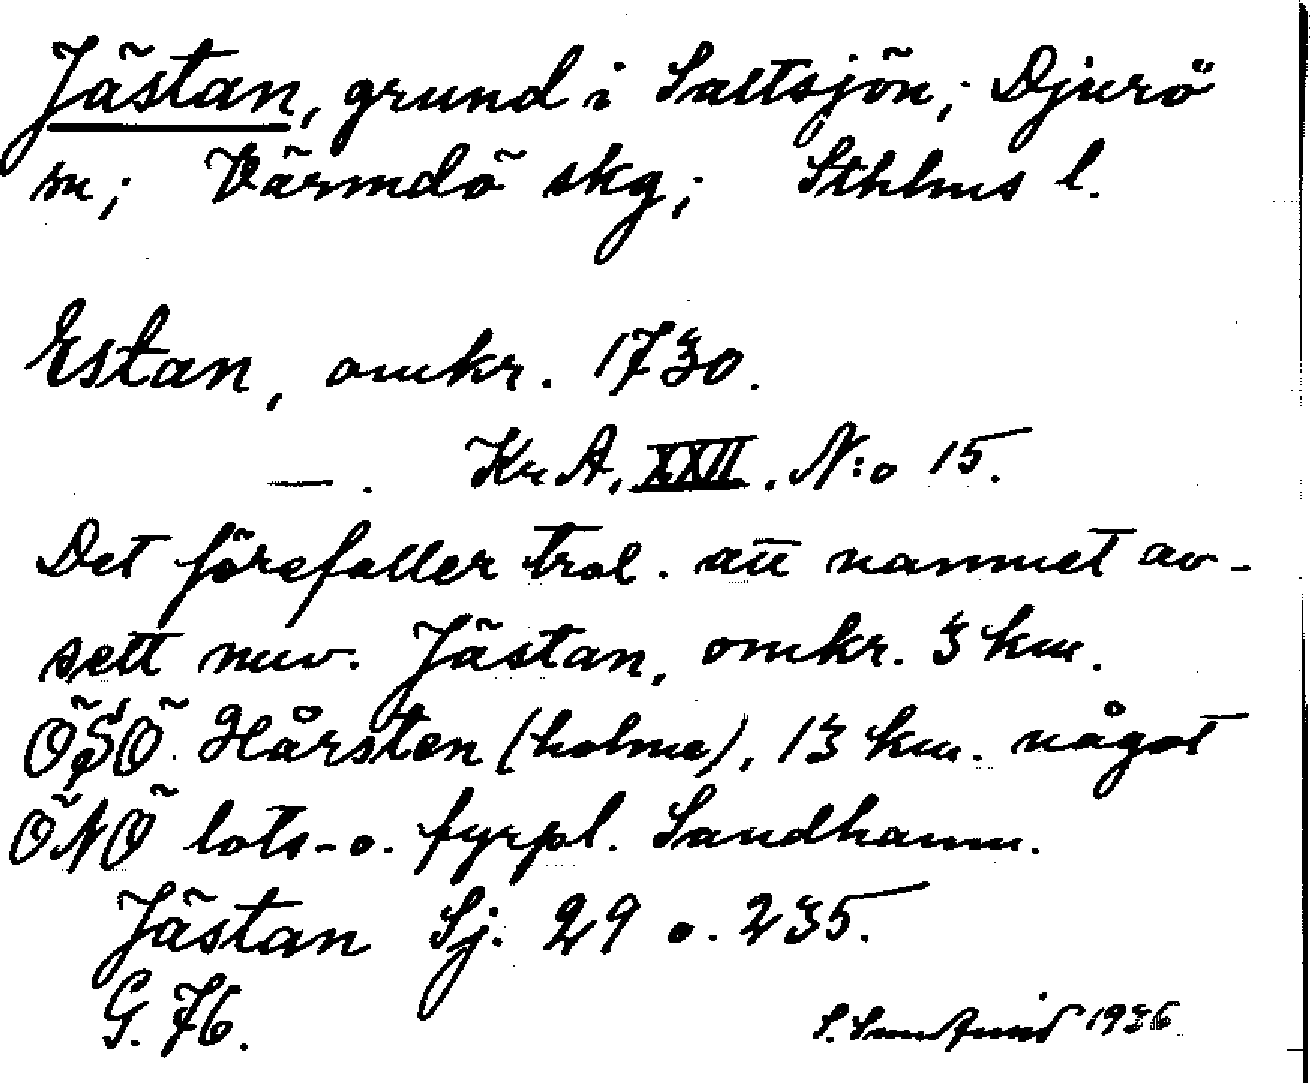 Jästan, grund i Saltsjön; Djurö
sn; Värmdö skg; Sthlms l.
Estan, omkr. 1730.
—. Kr A, XXII. N:o 15.
Det förefaller trol. att namnet av-
sett nuv. Jästan, omkr. 3 km.
ÖSÖ. Hårsten (holme), 13 km. något
ÖNÖ lots- o. fyrpl. Sandhamn.
Jästan Sj. 29 o. 235.
G. 76.
S. 1936